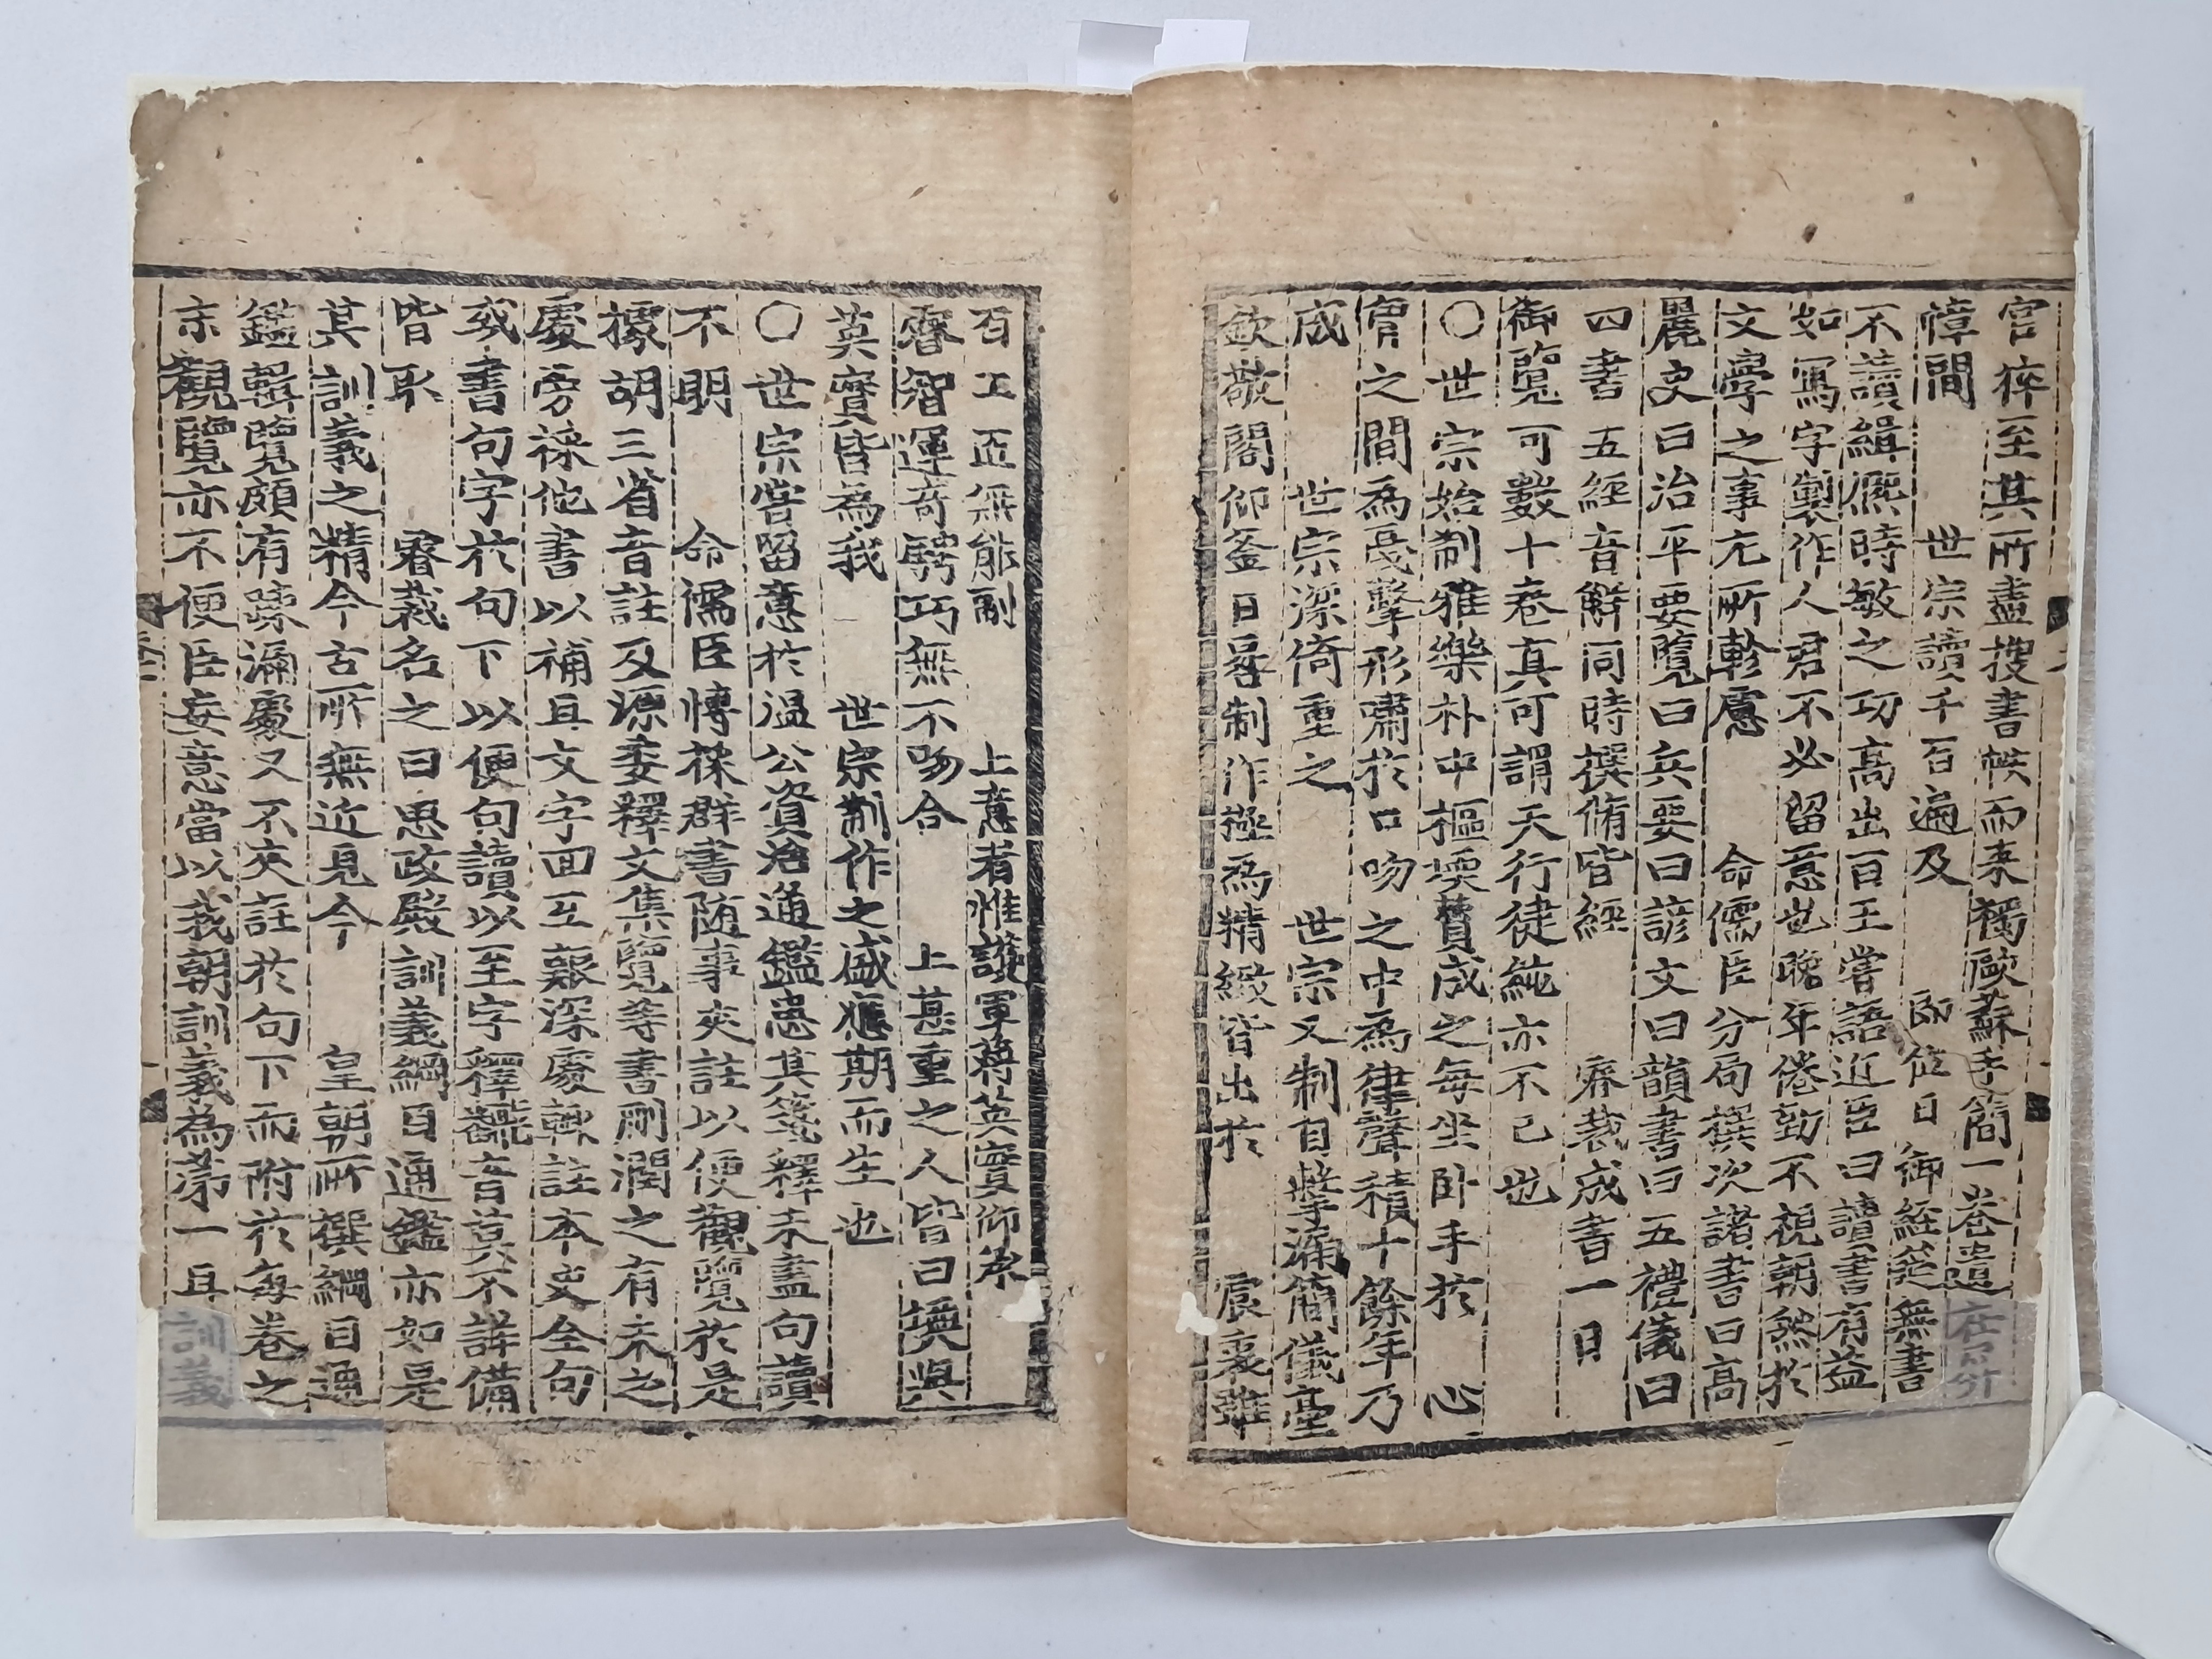 宦猝至其所盡搜書帙而來獨歐蘇手簡一卷遺在屛
幛間世宗讀千百遍及卽位日御經筵無書
不讀緝熙時敏之功高出百王嘗語近臣曰讀書有益
如寫字製作人君不必留意也晩年倦勤不視朝然於
文學之事尤所軫慮命儒臣分局撰次諸書曰高
麗史曰治平要覽曰兵要曰諺文曰韻書曰五禮儀曰
四書五經音解同時撰脩皆經睿裁成書一日
御覽可數十卷眞可謂天行徤純亦不已也
○世宗始制雅樂朴中樞堧賛成之每坐卧手於心
膺之間爲戞擊形嘯於口吻之中爲律聲積十餘年乃
成世宗深倚重之世宗又制自擊漏簡儀臺
欽敬閣仰釜日晷制作極爲精緻皆出於宸衷雖
百工匠無能副上意者惟護軍蔣英實仰承
睿智運奇騁巧無不吻合上甚重之人皆曰堧與
英實皆爲我世宗制作之盛應期而生也
○世宗嘗留意於溫公資治通鑑患其箋釋未盡句讀
不明命儒臣博採群書随事夾註以便觀覽於是
據胡三省音註及源委釋文集覽等書刪潤之有未之
處旁採他書以補且文字囬互艱深處輙註本史全句
或書句字於句下以便句讀以至字釋飜音莫不詳備
皆取睿裁名之曰思政殿訓義綱目通鑑亦如是
其訓義之精今古所無近見今皇朝所撰綱目通
鑑輯覽頗有踈漏處又不夾註於句下而附於每卷之
末觀覽亦不便臣妄意當以我朝訓義爲第一且訓義